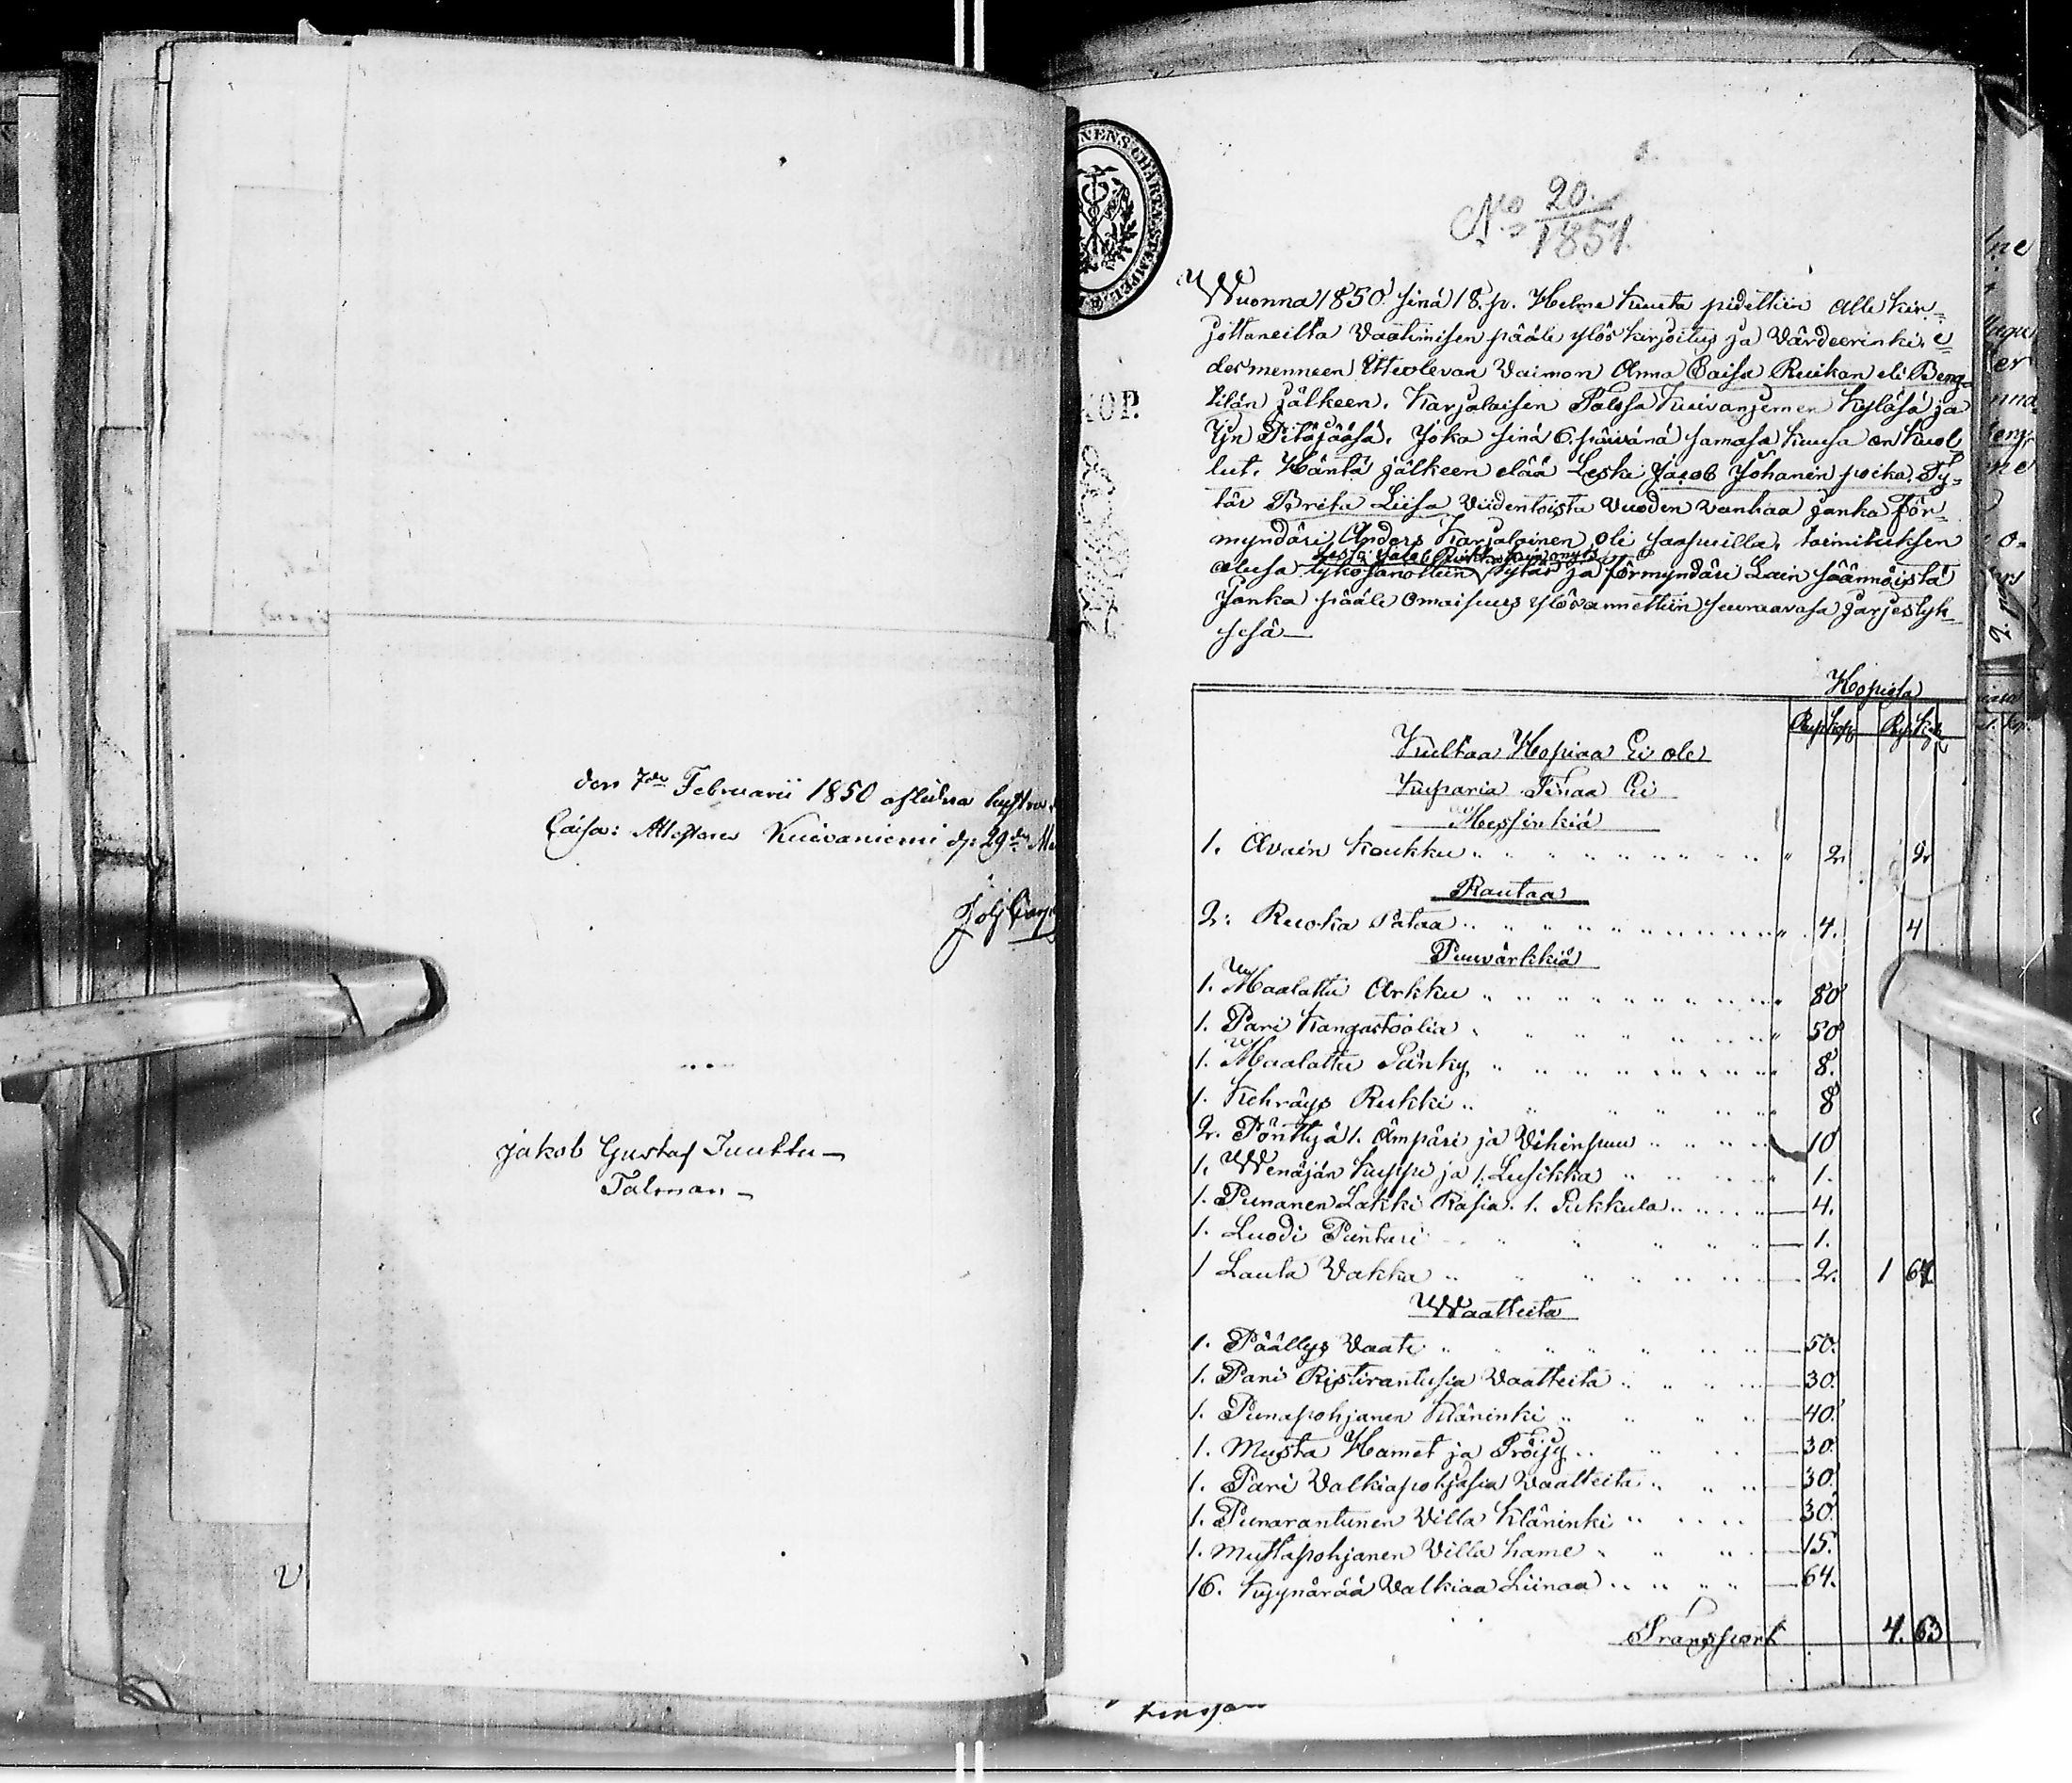 den 7de Februarii 1850 aflidna hustru
Caisa: Attesteras Kuivaniemi d. 29de
Jakob Gustaf Juuttu
Talman
V
KOP.
No 20.
1851.
Wuonna 1850 sinä 18. p. Helme kuuta pidettiin Alle kir-
jottaneilta Vaatimisen pääle ylös kirjoitus ja Värdeerinki, e-
desmenneen Itteolevan Vaimon Anna Caisa Ruikan eli Beng-
tilän jälkeen. Karjalaisen Talosa Kuivanjemen kyläsä ja
Ijn Pitäjääsä. Joka sinä 6. päivänä samasa kuusa on kuol-
lut. Häntä jälkeen elää Leski Jacob Johanin poika, Ty-
tär Brita Liisa Viidentoista Vuoden vanhaa jonka För-
myndäri Anders Karjalainen oli saapuilla, toimituksen
alusa tykösanottiin Tytär ja förmyndäri Lain säännöistä
Jonka pääle omaisuus ylösannettiin seuraavasa järjestyk-
sesä
Hopiasa
Rup Kop Rup Kop
Kultaa Hopiaa Ei ole
Kuparia Tinaa Ei
Messinkiä
1. Avain koukku " 2. 2.
Rautaa
2: Ruoka Pataa " 4. 4
Puuvärkkiä
1. Maalattu Arkku " 80
1. Pari Kangastoolia " 50
1. Maalattu Sänky " 8.
1. Kehräys Rukki " 8
2. Pönttyä 1. Ämpäri ja Vihinpuu 10
1. Wenäjän kuppi ja 1. Lusikka " 1.
1. Punanen Lakki Rasia. 1. Pukkula 4.
1. Luodi Puntari 1.
1 Lauta Vakka 2. 1 64.
Waatteita
1. Päällys Vaate 50.
1. Pari Ristirantusia Vaatteita 30.
1. Punapohjanen Kläninki 40.
1. Musta Hamet ja Tröijy 30.
1. Pari Valkiapohjasia Vaatteita 30.
1. Punarantunen Villa Kläninki 30.
1. Mustapohjanen Villa hame 15.
16. Kyynärää Valkiaa Liinaa 64.
Transport 4. 63